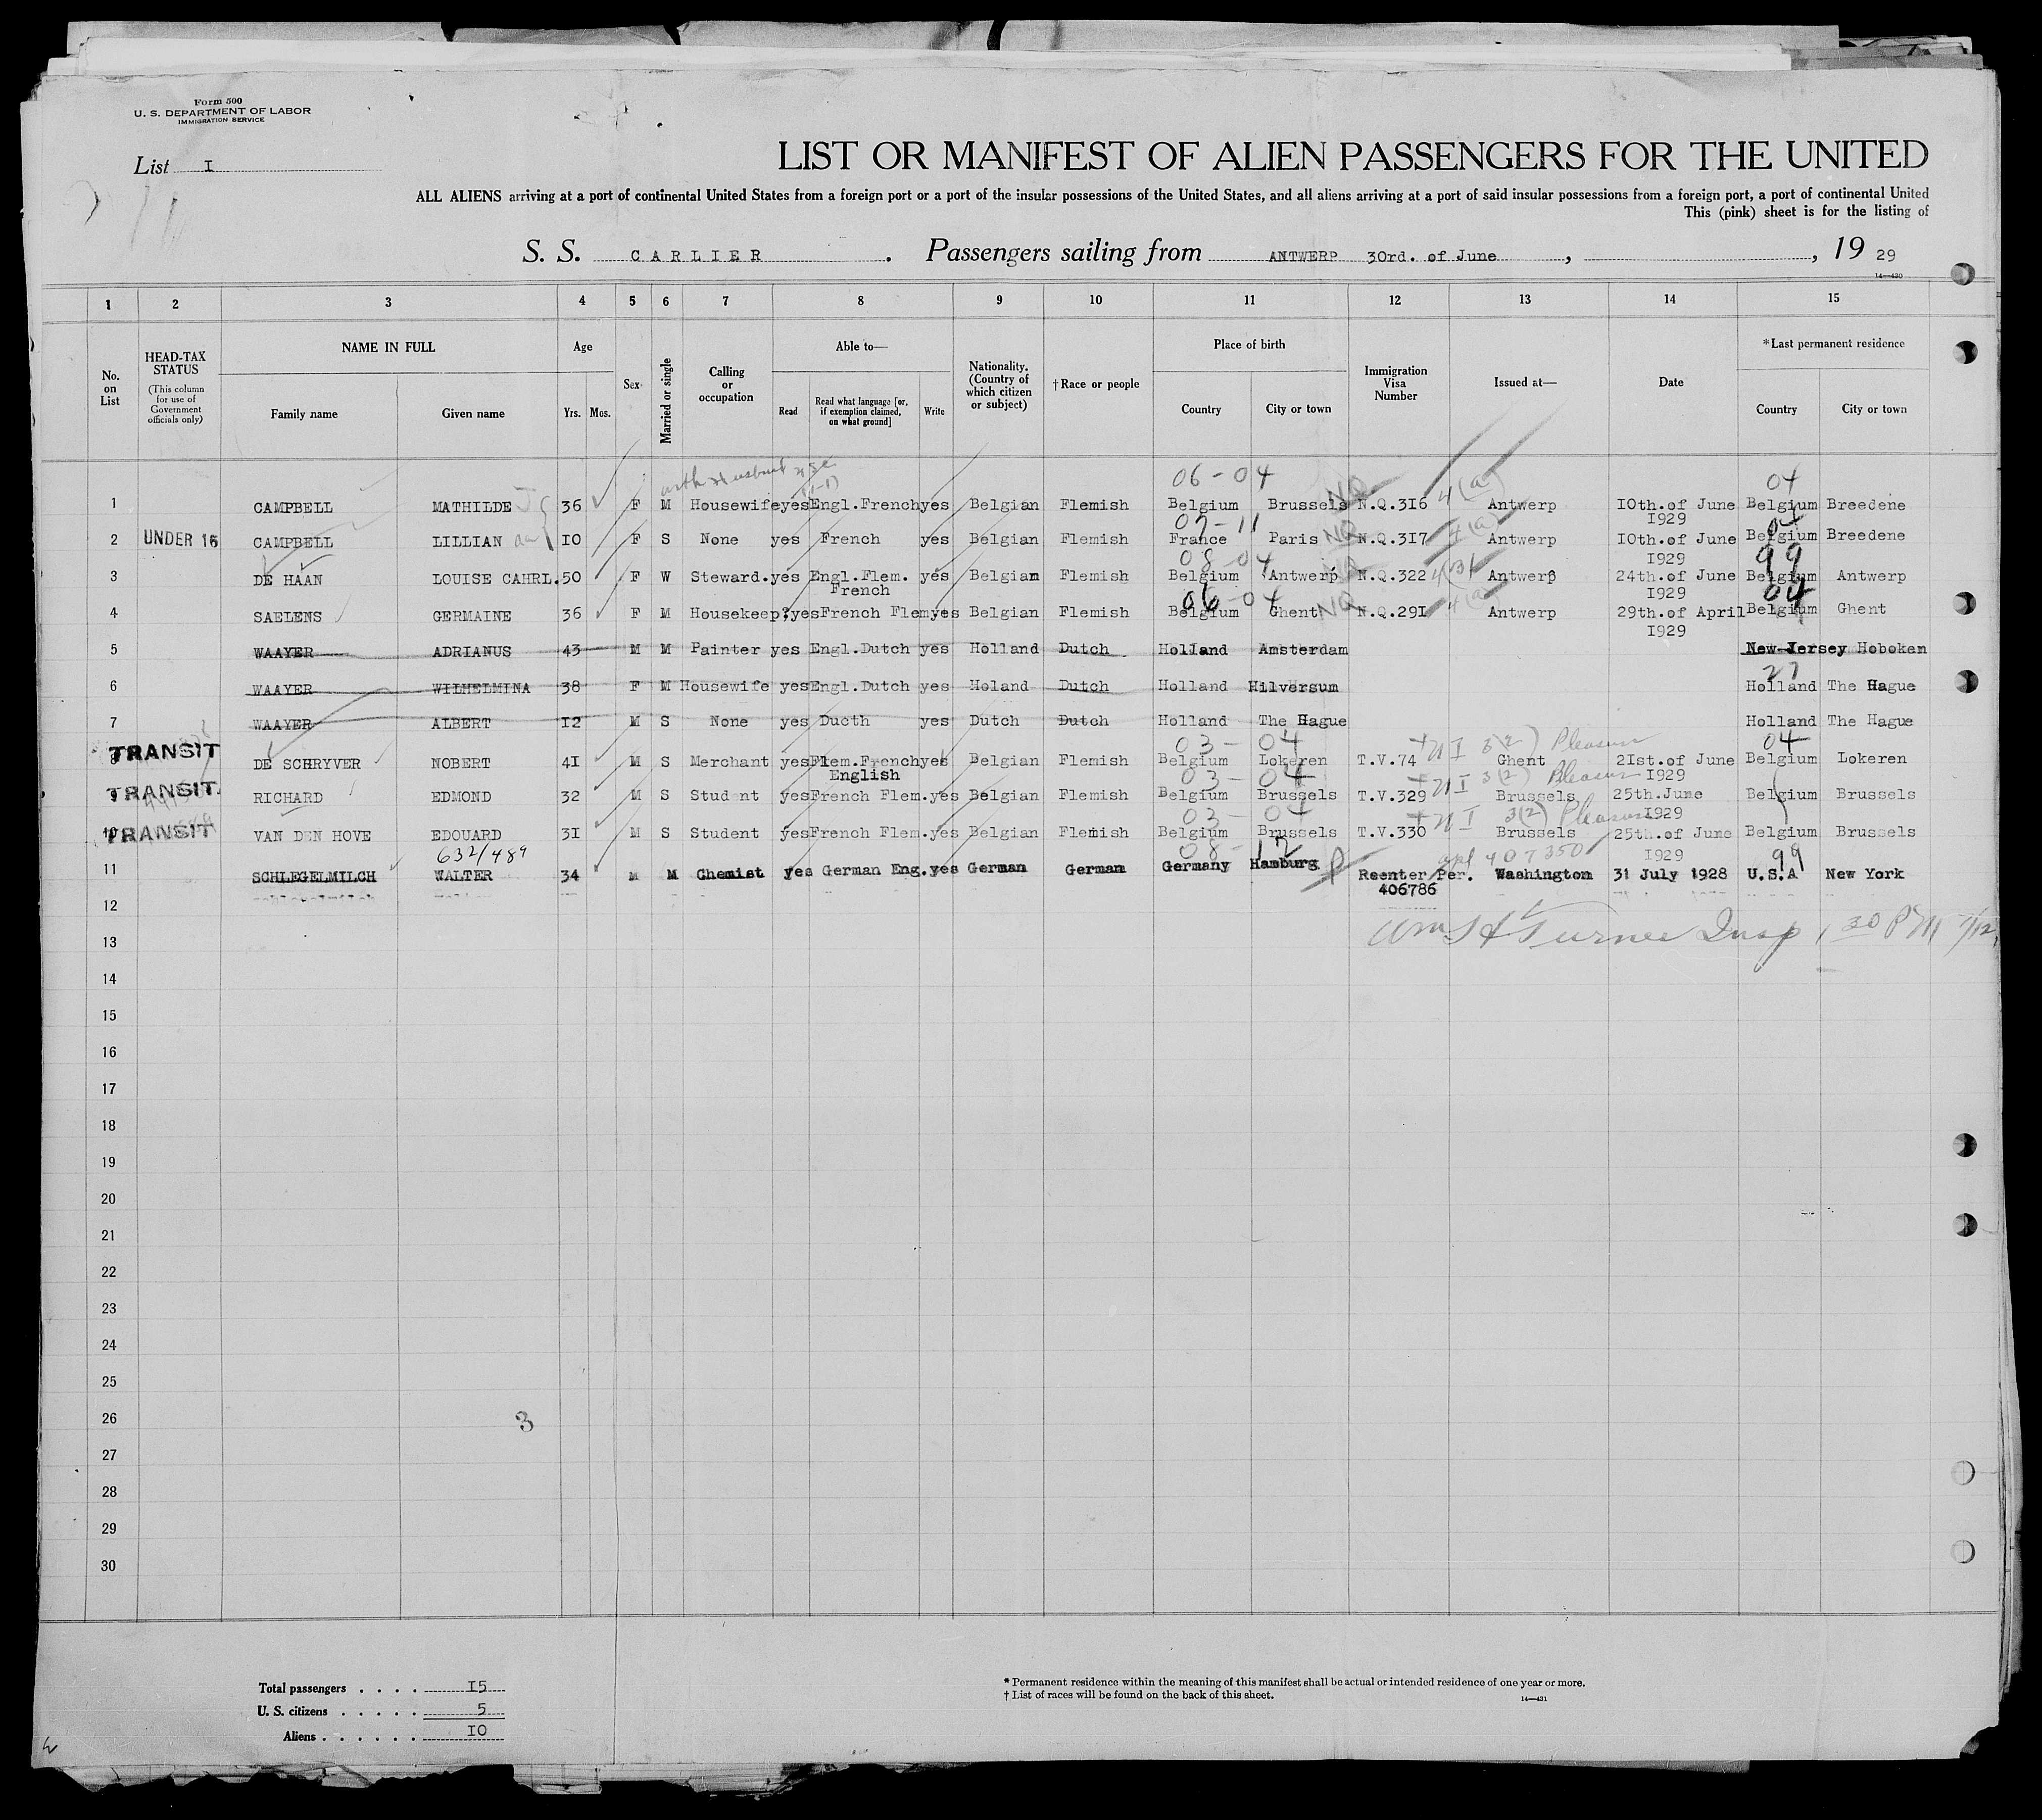 Form 500
U. S. DEPARTMENT OF LABOR
IMMIGRATION SERVICE
List I
LIST OR MANIFEST OF ALIEN PASSENGERS FOR THE UNITED
ALL ALIENS arriving at a port of continental United States from a foreign port or a port of the insular possessions of the United States, and all aliens arriving at a port of said insular possessions from a foreign port, a port of continental United
This (pink) sheet is for the listing of
S. S. CARLIER . Passengers sailing from ANTWERP 30rd. of June , , 19 29
14—430
1 2 3 4 5 6 7 8 9 10 11 12 13 14 15
No. on List
HEAD-TAX STATUS
(This column for use of Government officials only)
NAME IN FULL
Family name Given name
Age
Yrs. Mos.
Sex
Married or single
Calling or occupation
Able to—
Read
Read what language [or, if exemption claimed, on what ground]
Write
Nationality. (Country of which citizen or subject)
† Race or people
Place of birth
Country City or town
Immigration Visa Number
Issued at—
Date
*Last permanent residence
Country City or town
06-04 04
1 CAMPBELL MATHILDE 36 F M Housewife yes Engl.French yes Belgian Flemish Belgium Brussels N.Q.316 4(a) Antwerp I0th.of June I929 Belgium Breedene
2 UNDER 16 CAMPBELL LILLIAN I0 F S None yes French yes Belgian Flemish France Paris N.Q.3I7 4(a) Antwerp I0th.of June I929 Belgium Breedene
08-04 99
3 DE HAAN LOUISE CAHRL. 50 F W Steward. yes Engl.Flem. French yes Belgian Flemish Belgium Antwerp N.Q.322 Antwerp 24th.of June I929 Belgium Antwerp
06-04 04
4 SAELENS GERMAINE 36 F M Housekeep. yes French Flem yes Belgian Flemish Belgium Ghent N.Q.29I Antwerp 29th.of April I929 Belgium Ghent
5 WAAYER ADRIANUS 43 M M Painter yes Engl.Dutch yes Holland Dutch Holland Amsterdam New-Jersey Hoboken
6 WAAYER WILHELMINA 38 F M Housewife yes Engl.Dutch yes Holand Dutch Holland Hilversum Holland The Hague
7 WAAYER ALBERT I2 M S None yes Ducth yes Dutch Dutch Holland The Hague Holland The Hague
03-04 NI 3(2) Pleasure 04
8 TRANSIT DE SCHRYVER NOBERT 4I M S Merchant yes Flem.French English yes Belgian Flemish Belgium Lokeren T.V.74 Ghent 2Ist.of June I929 Belgium Lokeren
03-04 NI 3(2) Pleasure
9 TRANSIT RICHARD EDMOND 32 M S Student yes French Flem. yes Belgian Flemish Belgium Brussels T.V.329 Brussels 25th.June I929 Belgium Brussels
03-04 NI 3(2) Pleasure
10 TRANSIT VAN DEN HOVE EDOUARD 3I M S Student yes French Flem. yes Belgian Flemish Belgium Brussels T.V.330 Brussels 25th.of June I929 Belgium Brussels
632/489 08-12 99
11 SCHLEGELMILCH WALTER 34 M M Chemist yes German Eng. yes German German Germany Hamburg Reenter Per. 406786 Washington 31 July 1928 U.S.A New York
12
13
14
15
16
17
18
19
20
21
22
23
24
25
26
3
27
28
29
30
Total passengers . . . . I5
U. S. citizens . . . . . 5
Aliens . . . . . . I0
* Permanent residence within the meaning of this manifest shall be actual or intended residence of one year or more.
† List of races will be found on the back of this sheet.
14—431